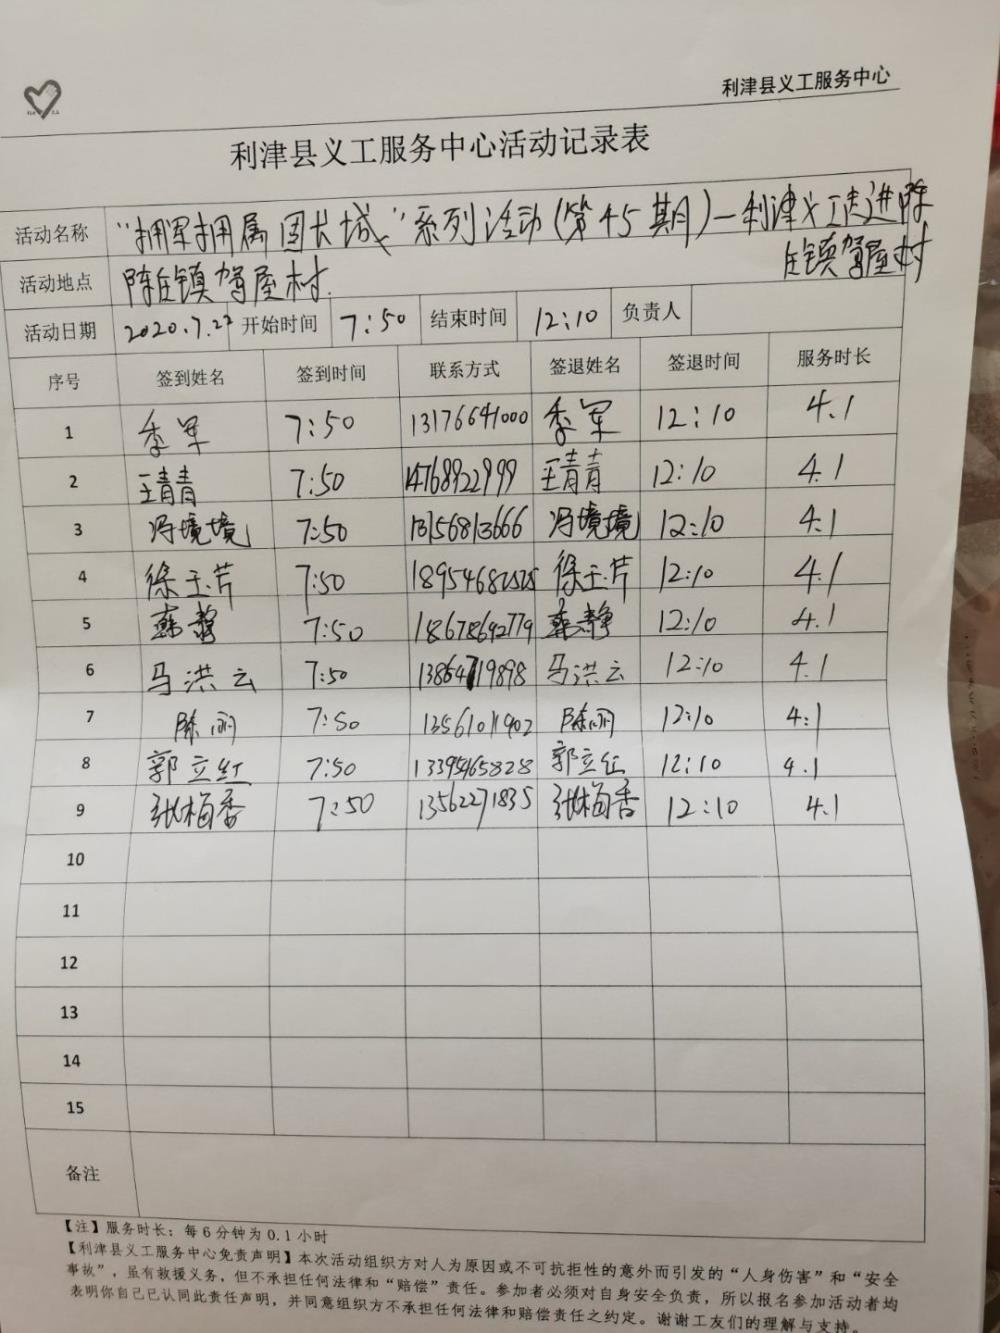 利津县义工服务中心
利津县义工服务中心活动记录表
活动名称 "拥军拥属 固长城"系列活动(第45期)—利津义工走进陈
庄镇驾屋村
活动地点 陈庄镇驾屋村
活动日期 2020.7.22 开始时间 7:50 结束时间 12:10 负责人
序号 签到姓名 签到时间 联系方式 签退姓名 签退时间 服务时长
1 季军 7:50 13176641000 季军 12:10 4.1
2 王青青 7:50 14768922999 王青青 12:10 4.1
3 冯境境 7:50 13156813666 冯境境 12:10 4.1
4 徐玉芹 7:50 18954682525 徐玉芹 12:10 4.1
5 7:50 18678692779 12:10 4.1
6 马洪云 7:50 13864719898 马洪云 12:10 4.1
7 陈丽 7:50 13561011902 陈丽 12:10 4.1
8 郭立红 7:50 13395465828 郭立红 12:10 4.1
9 张梅香 7:50 13562271835 张梅香 12:10 4.1
10
11
12
13
14
15
备注
【注】服务时长：每6分钟为0.1小时
【利津县义工服务中心免责声明】本次活动组织方对人为原因或不可抗拒性的意外而引发的“人身伤害”和“安全
事故”，虽有救援义务，但不承担任何法律和“赔偿”责任。参加者必须对自身安全负责，所以报名参加活动者均
表明你自己已认同此责任声明，并同意组织方不承担任何法律和赔偿责任之约定。谢谢工友们的理解与支持。